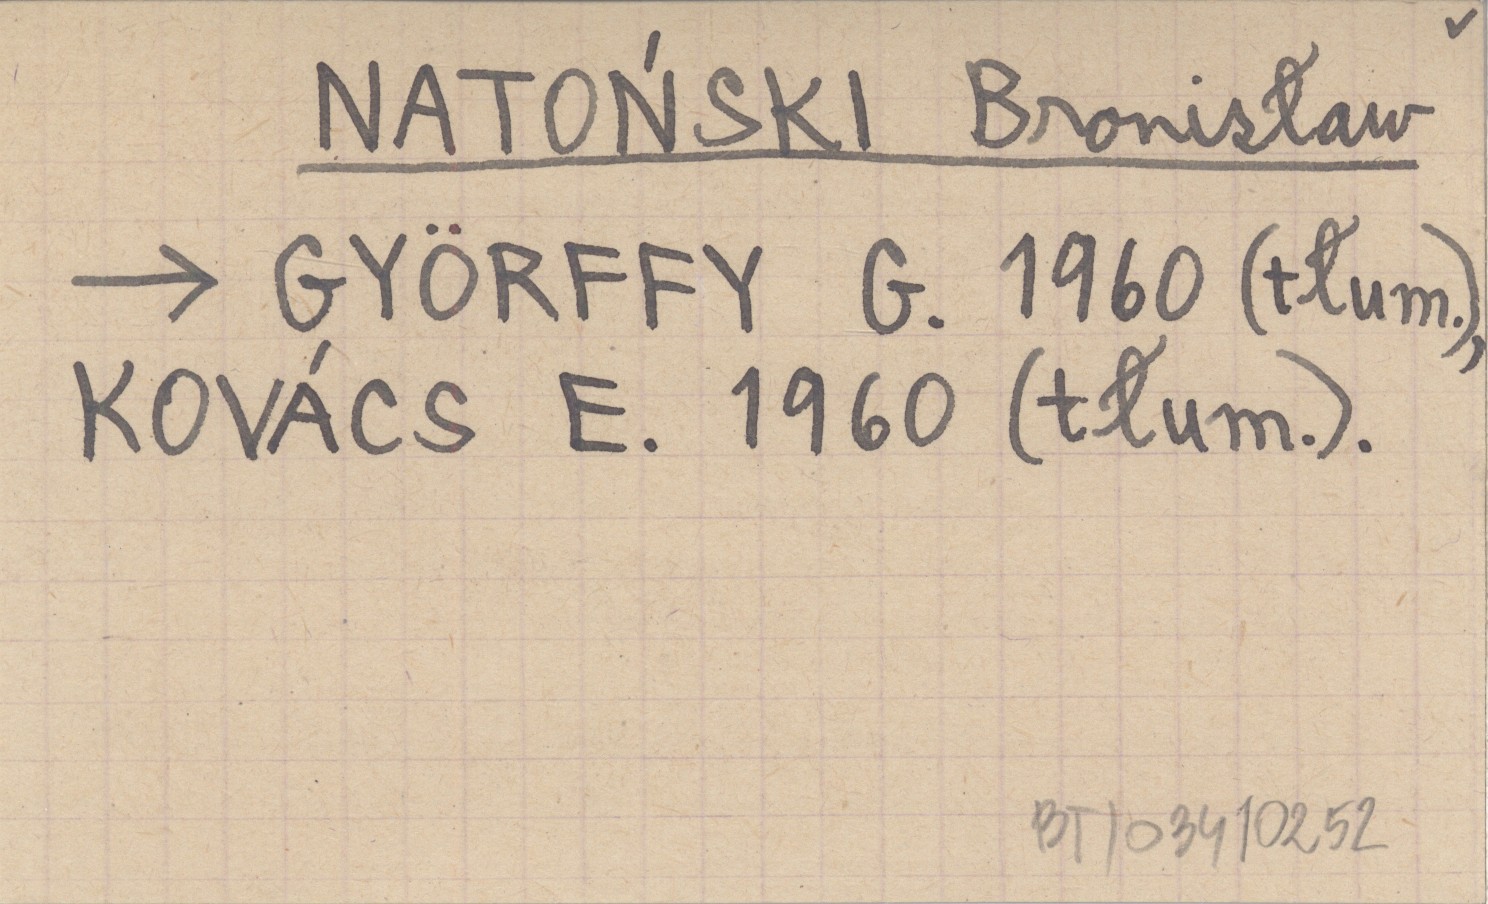 ✓
NATOŃSKI Bronisław
→ GYÖRFFY G. 1960 (tłum.),
KOVÁCS E. 1960 (tłum.).
BT/034/0252